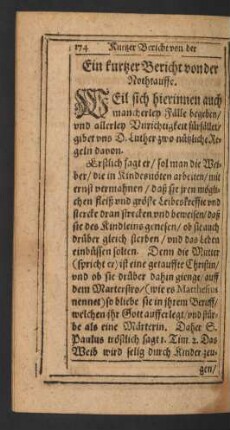 174 Kurtzer Bericht von der
Ein kurtzer Bericht von der
Nothtauffe.
WEil sich hierinnen auch
mancherley Fälle begeben/
vnd allerley Vnrichtigkeit fürfället/
gibet vns D. Luther zwo nützliche Re-
geln davon.
Erstlich sagt er/ sol man die Wei-
ber/ die in Kindesnöten arbeiten/ mit
ernst vermahnen/ daß sie jren mögli-
chen fleiß vnd gröste Leibeskreffte vnd
stercke dran strecken vnd beweisen/ daß
sie des Kindleins genesen/ ob sie auch
drüber gleich sterben/ vnd das Leben
einbüssen solten. Denn die Mutter
(spricht er) ist eine getauffte Christin/
vnd ob sie drüber dahin gienge auff
dem Marterstro/ (wie es Matthesius
nennet) so bliebe sie in jhrem Beruff/
welchen jhr Gott aufferlegt/ vnd stür-
be als eine Märterin. Daher S.
Paulus tröstlich sagt 1. Tim. 2. Das
Weib wird selig durch Kinder zeu-
gen/